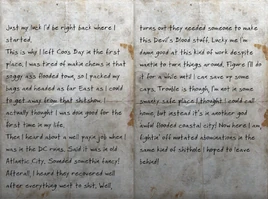 Just my luck I'd be right back where I
started.
This is why I left Coos Bay in the first
place, I was tired of makin chems in that
soggy ass flooded town, so I packed my
bags and headed as far East as I could
to get away from that shitshow. I
actually thought I was doin good for the
first time in my life.
Then I heard about a well payin job when I
was in the DC ruins. Said it was in old
Atlantic City, Sounded somethin fancy!
Afterall, I heard they recovered well
after everything went to shit. Well,
turns out they needed someone to make
this Devil's Blood stuff. Lucky me I'm
damn good at this kind of work despite
wantin to turn things around. Figure I'll do
it for a while until I can save up some
caps. Trouble is though, I'm not in some
smarty safe place I thought I could call
home, but instead it's in another god
awful flooded coastal city! Now here I am
fightin' off mutated abominations in the
same kind of shithole I hoped to leave
behind!